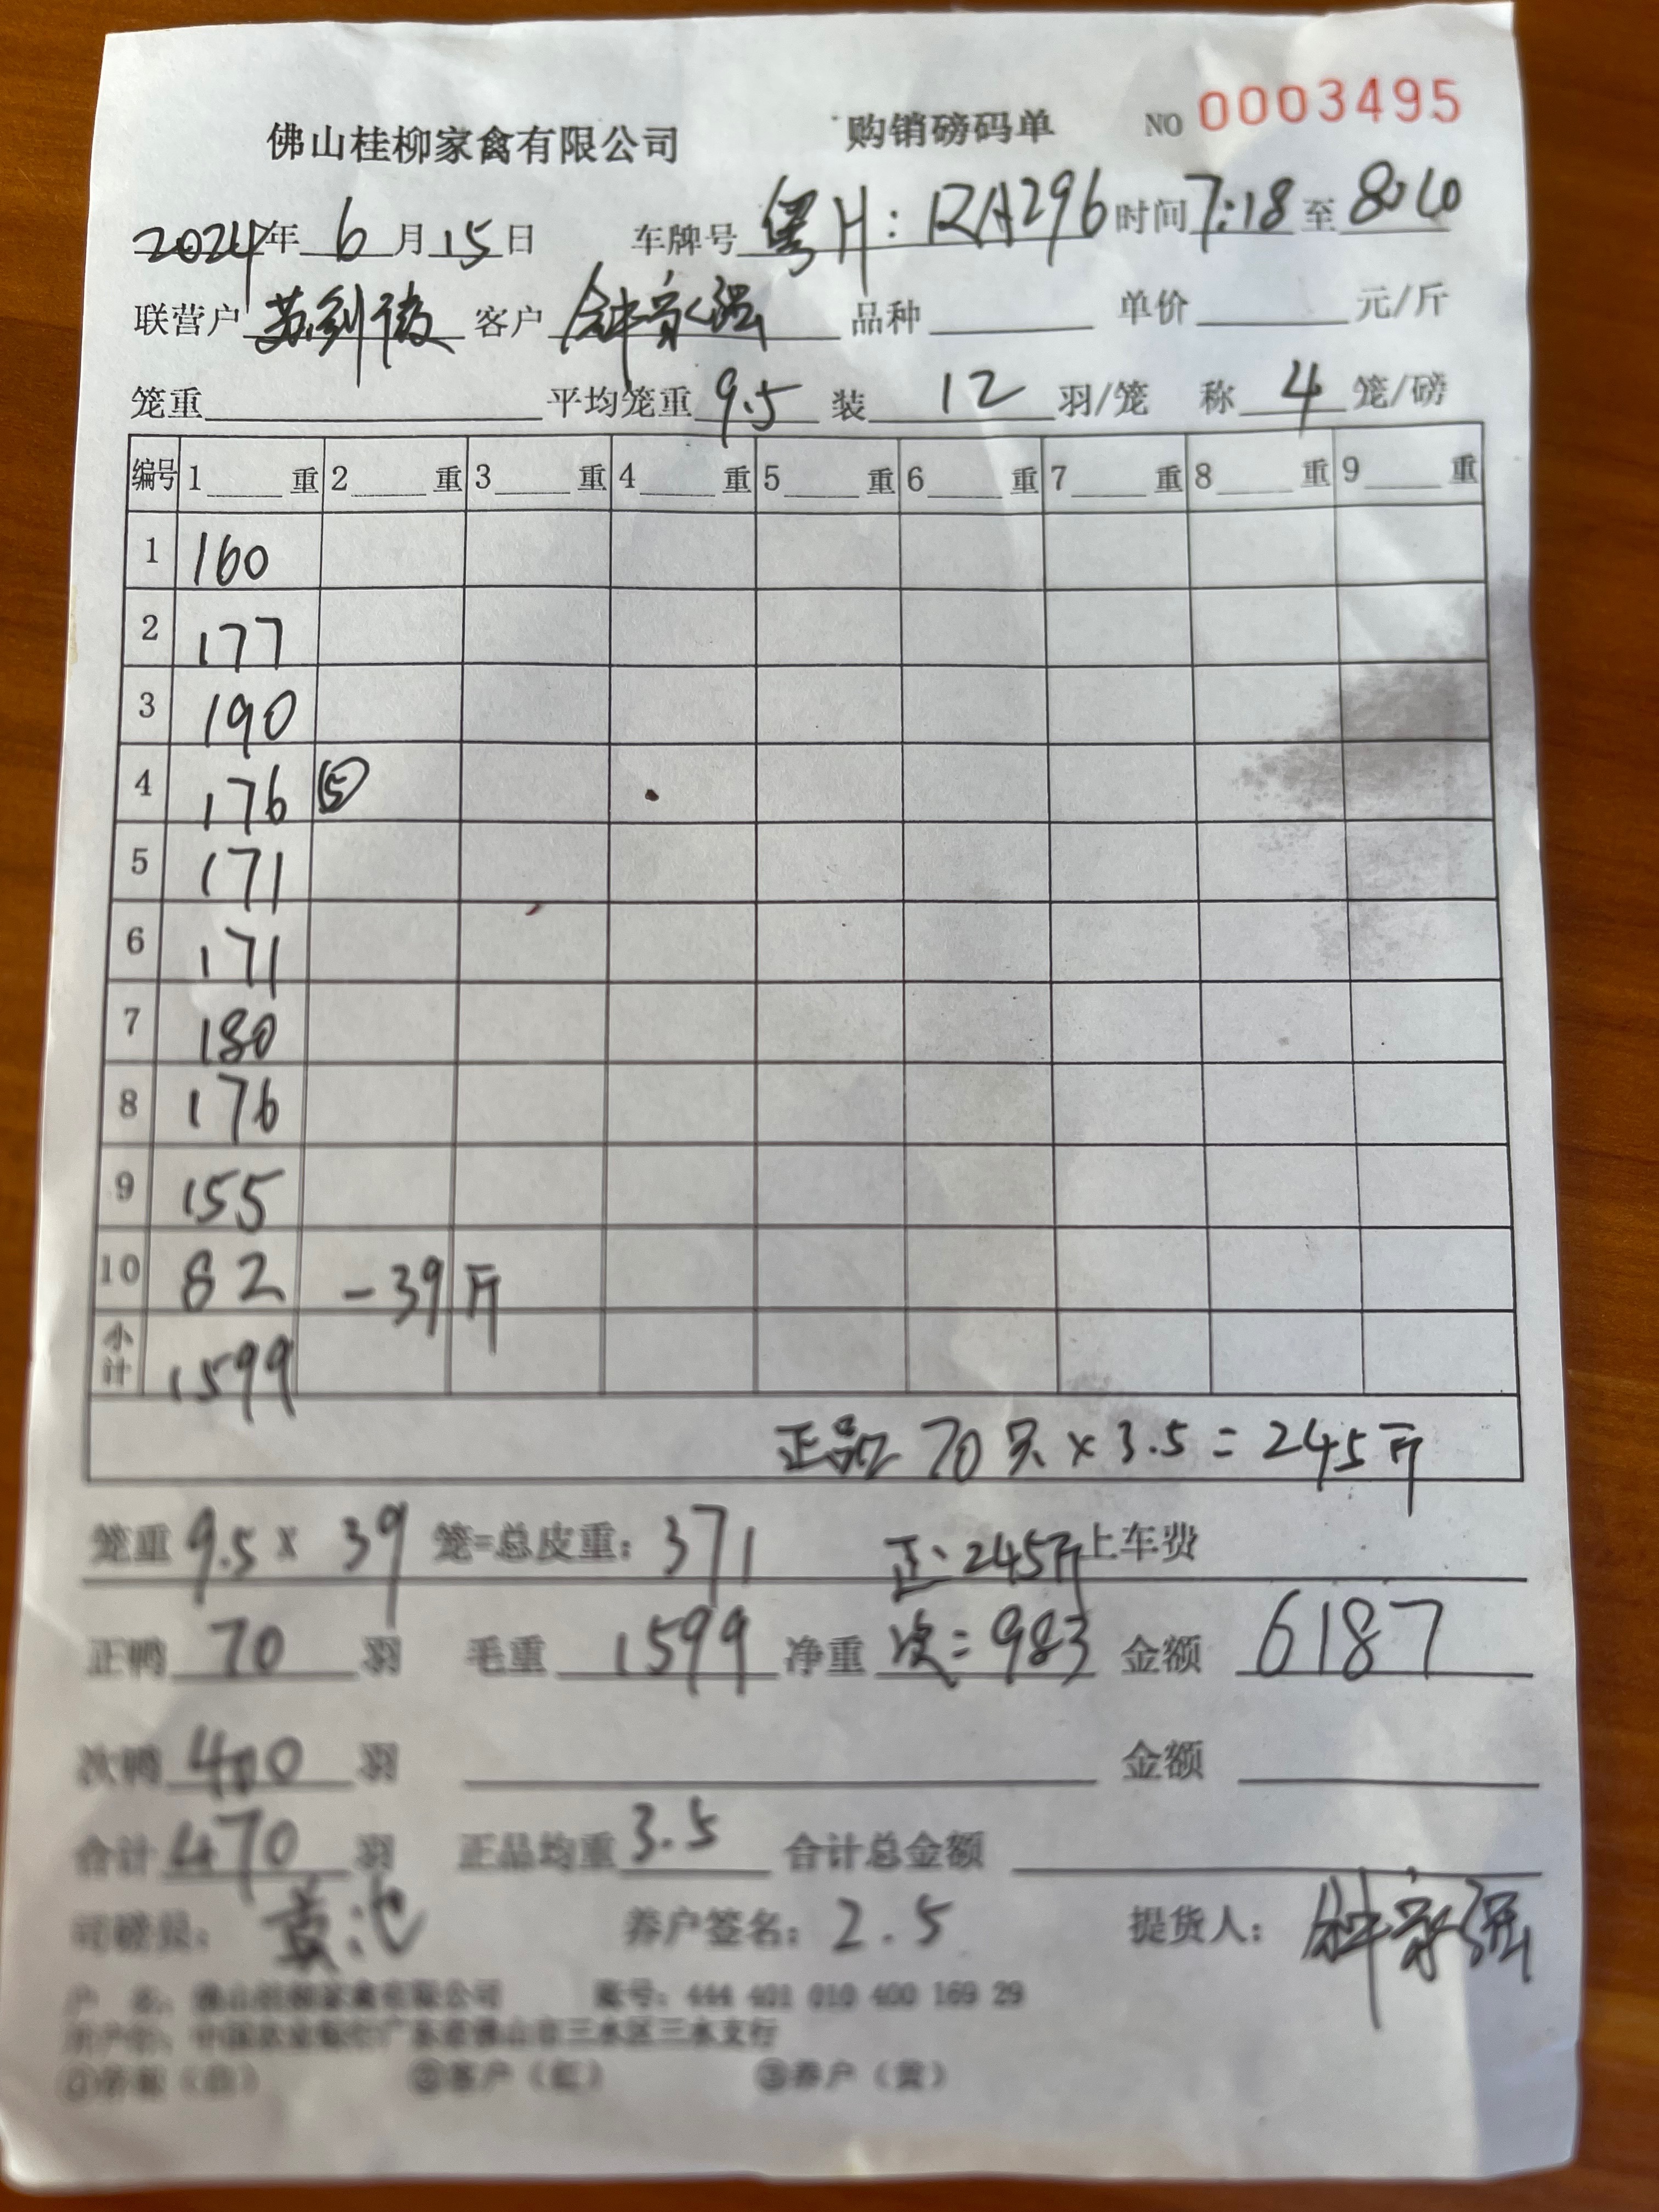 佛山桂柳家禽有限公司 购销磅码单 NO 0003495
2024年 6 月 15 日 车牌号 粤H:RA296 时间 7:18 至
联营户 客户 品种 单价 元/斤
笼重 平均笼重 9.5 装 12 羽/笼 称 4 笼/磅
编号 1 重 2 重 3 重 4 重 5 重 6 重 7 重 8 重 9 重
1 160
2 177
3 190
4 176 ⑤
5 171
6 171
7 180
8 176
9 155
10 82 -39斤
小计 1599
正品 70只×3.5=245斤
笼重 9.5× 39 笼=总皮重: 371 正:245斤 上车费
正鸭 70 羽 毛重 1599 净重 次:983 金额 6187
次鸭 400 羽 金额
合计 470 羽 正品均重 3.5 合计总金额
司磅员: 养户签名: 2.5 提货人:
户 名: 佛山桂柳家禽有限公司 账号: 444 401 010 400 169 29
三水区三水支行
②客户(红) ③养户(黄)